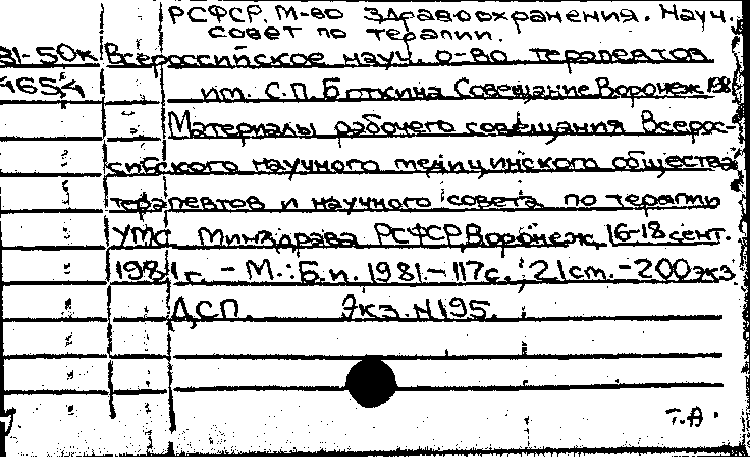 РСФСР. М-во здравоохранения. Науч.
совет по терапии.
81-50к Всероссийское науч. о-во терапевтов
465 им. С.П. Боткина Совещание Воронеж 1981
Материалы рабочего совещания Всерос-
сийского научного медицинского общества
терапевтов и научного совета по терапии
УМС Минздрава РСФСР, Воронеж, 16-18 сент.
1981 г. - М.: Б.и. 1981. - 117 с.; 21 см. - 200 экз
ДСП. Экз. N195.
Т.А.